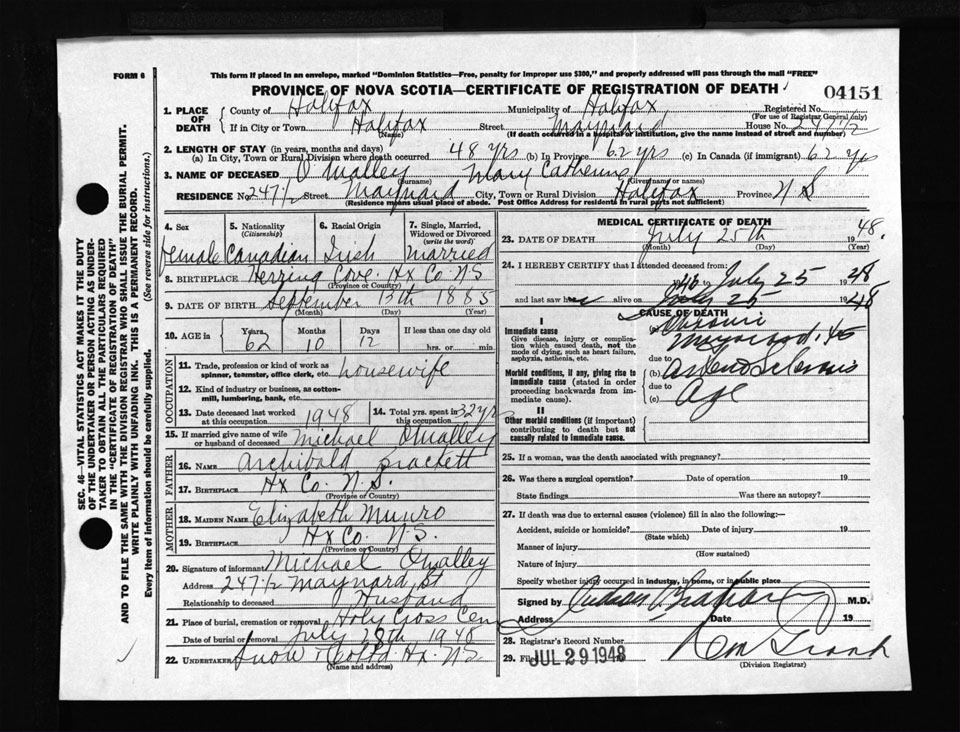 FORM 6
This form if placed in an envelope, marked "Dominion Statistics—Free, penalty for improper use $300," and properly addressed will pass through the mail "FREE"
PROVINCE OF NOVA SCOTIA—CERTIFICATE OF REGISTRATION OF DEATH
04151
1. PLACE OF DEATH
County of Halifax Municipality of Halifax Registered No.
(For use of Registrar General only)
If in City or Town Halifax Street Maynard House No. 247 1/2
(Name) (If death occurred in a hospital or institution, give the name instead of street and number)
2. LENGTH OF STAY (in years, months and days)
(a) In City, Town or Rural Division where death occurred 48 yrs (b) In Province 62 yrs (c) In Canada (if immigrant) 62 yrs
3. NAME OF DECEASED O'Malley Mary Catherine
(Surname) (Given name or names)
RESIDENCE No. 247 1/2 Street Maynard City, Town or Rural Division Halifax Province N S
(Residence means usual place of abode. Post Office Address for residents in rural parts not sufficient)
4. Sex 5. Nationality (Citizenship) 6. Racial Origin 7. Single, Married, Widowed or Divorced (write the word)
female Canadian Irish Married
8. BIRTHPLACE Herring Cove Hx Co. N S
(Province or Country)
9. DATE OF BIRTH September 13th 1885
(Month) (Day) (Year)
10. AGE in Years Months Days If less than one day old
62 10 12 hrs. or min.
OCCUPATION
11. Trade, profession or kind of work as spinner, teamster, office clerk, etc. housewife
12. Kind of industry or business, as cotton-mill, lumbering, bank, etc.
13. Date deceased last worked at this occupation 1948 14. Total yrs. spent in 32 yrs
15. If married give name of wife or husband of deceased Michael O'Malley
FATHER
16. NAME Archibald Brackett
17. BIRTHPLACE Hx Co. N.S.
(Province of Country)
MOTHER
18. MAIDEN NAME Elizabeth Munro
19. BIRTHPLACE Hx Co. N.S.
(Province or Country)
20. Signature of informant Michael O'Malley
Address 247 1/2 Maynard St
Relationship to deceased Husband
21. Place of burial, cremation or removal Holy Cross Cem
Date of burial or removal July 28th 1948
22. UNDERTAKER Snow Hx. N.S.
(Name and address)
MEDICAL CERTIFICATE OF DEATH
23. DATE OF DEATH July 25th 1948.
(Month) (Day) (Year)
24. I HEREBY CERTIFY that I attended deceased from
to July 25 1948
and last saw her alive on July 25 1948
CAUSE OF DEATH
I
Immediate cause
Give disease, injury or complication which caused death, not the mode of dying, such as heart failure, asphyxia, asthenia, etc.
(a) Chronic
due to
Morbid conditions, if any, giving rise to immediate cause (stated in order proceeding backwards from immediate cause).
(b)
due to
(c) Age
II
Other morbid conditions (if important) contributing to death but not causally related to immediate cause.
25. If a woman, was the death associated with pregnancy?
26. Was there a surgical operation? Date of operation 19
State findings Was there an autopsy?
27. If death was due to external causes (violence) fill in also the following:—
Accident, suicide or homicide? Date of injury 19
(State which)
Manner of injury
(How sustained)
Nature of injury
Specify whether injury occurred in industry, in home, or in public place
Signed by M.D.
Address Date 19
28. Registrar's Record Number
29. Filed JUL 29 1948
(Division Registrar)
SEC. 46—VITAL STATISTICS ACT MAKES IT THE DUTY
OF THE UNDERTAKER OR PERSON ACTING AS UNDER-
TAKER TO OBTAIN ALL THE PARTICULARS REQUIRED
IN THE "CERTIFICATE OF REGISTRATION OF DEATH"
AND TO FILE THE SAME WITH THE DIVISION REGISTRAR WHO SHALL ISSUE THE BURIAL PERMIT.
WRITE PLAINLY WITH UNFADING INK. THIS IS A PERMANENT RECORD.
Every item of information should be carefully supplied. (See reverse side for instructions.)